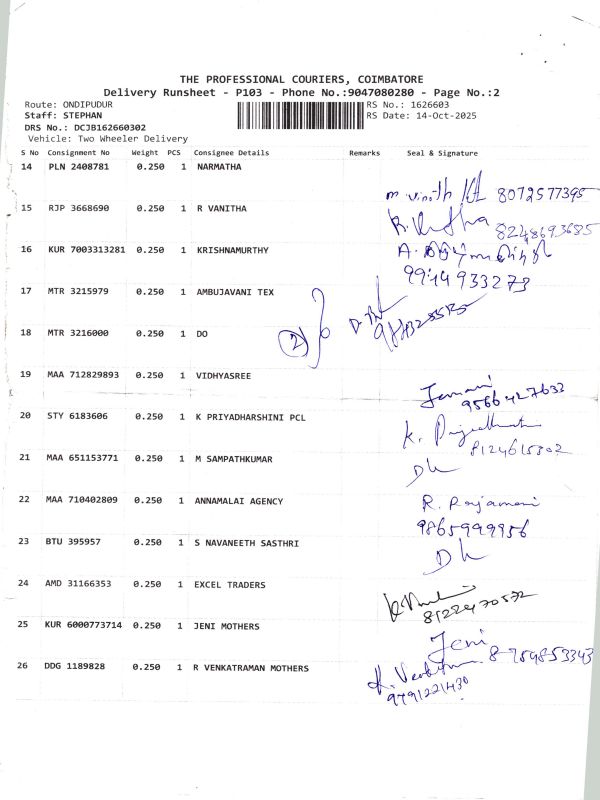 THE PROFESSIONAL COURIERS, COIMBATORE
Delivery Runsheet - P103 - Phone No.:9047080280 - Page No.:2
Route: ONDIPUDUR RS No.: 1626603
Staff: STEPHAN RS Date: 14-Oct-2025
DRS No.: DCJB162660302
Vehicle: Two Wheeler Delivery
S No Consignment No Weight PCS Consignee Details Remarks Seal & Signature
14 PLN 2408781 0.250 1 NARMATHA
m. vinoth 8072577395
15 RJP 3668690 0.250 1 R VANITHA
8248693685
16 KUR 7003313281 0.250 1 KRISHNAMURTHY
17 MTR 3215979 0.250 1 AMBUJAVANI TEX
18 MTR 3216000 0.250 1 DO
2
19 MAA 712829893 0.250 1 VIDHYASREE
9566427633
20 STY 6183606 0.250 1 K PRIYADHARSHINI PCL
8124615802
21 MAA 651153771 0.250 1 M SAMPATHKUMAR
22 MAA 710402809 0.250 1 ANNAMALAI AGENCY
R. Rajamani
9865999956
23 BTU 395957 0.250 1 S NAVANEETH SASTHRI
24 AMD 31166353 0.250 1 EXCEL TRADERS
8122470572
25 KUR 6000773714 0.250 1 JENI MOTHERS
Jeni 8754853343
26 DDG 1189828 0.250 1 R VENKATRAMAN MOTHERS
9791221430